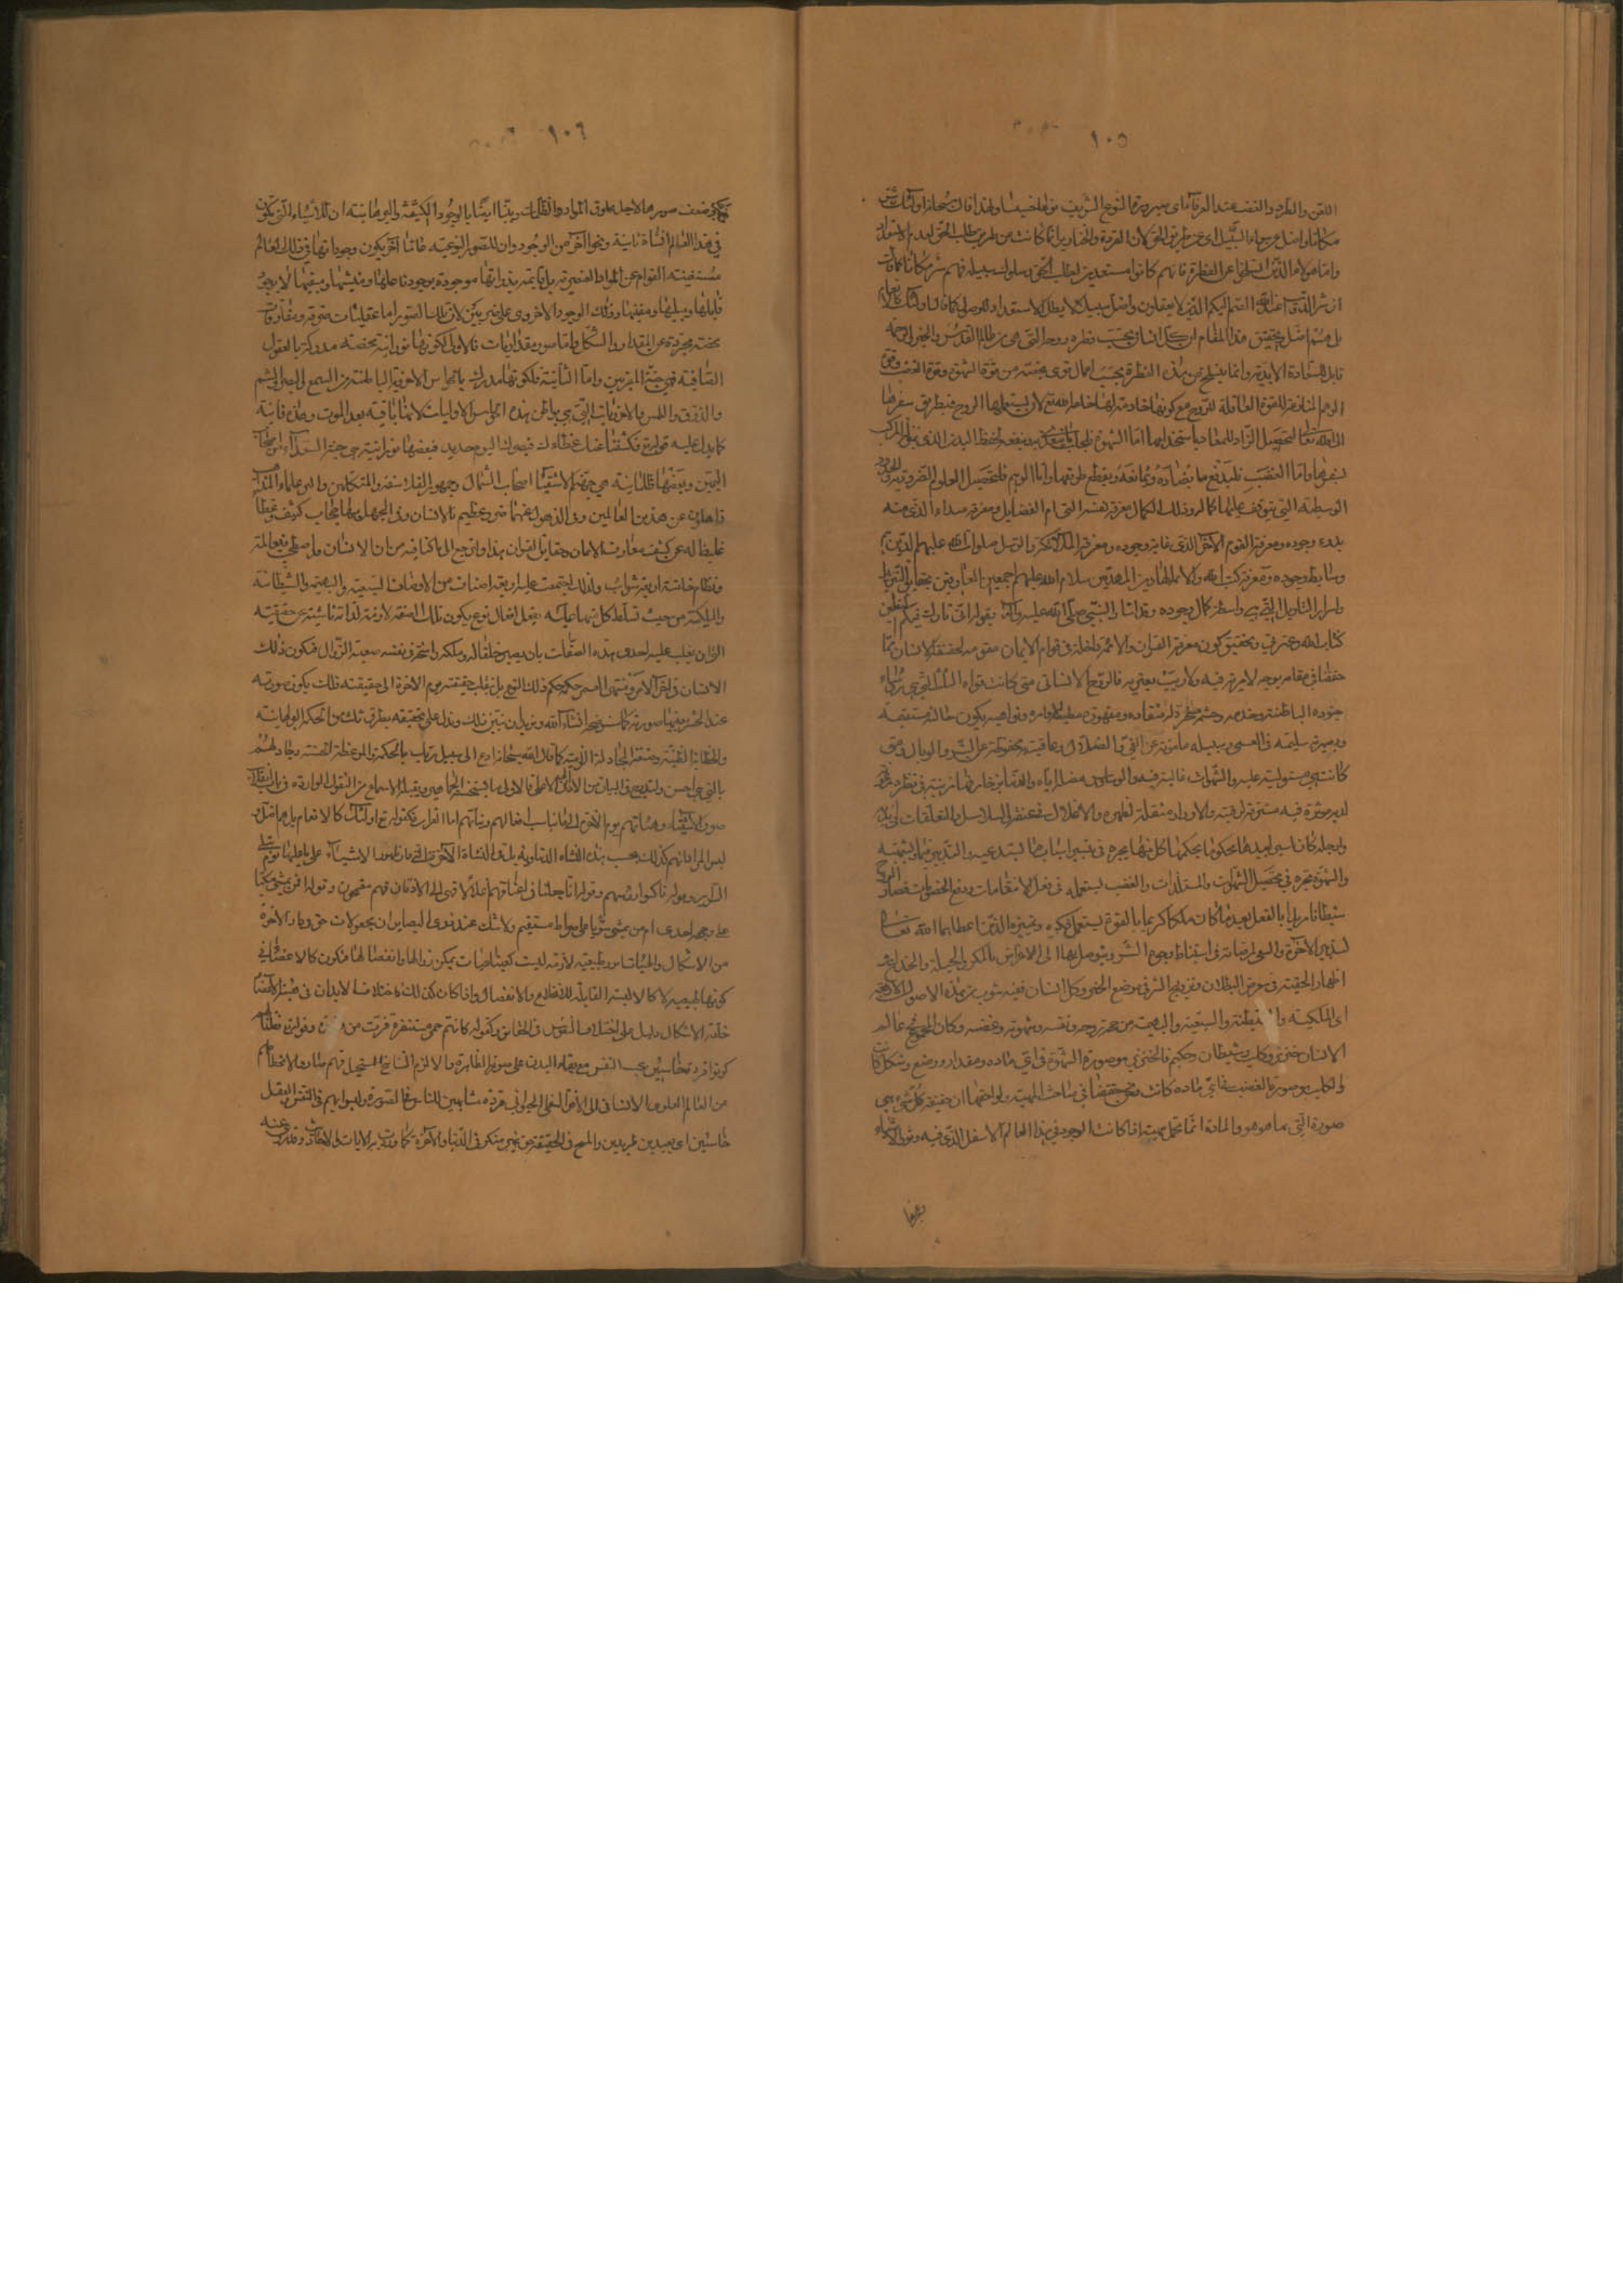 ١٠٥
اللعن والطرد والغضب عند العرفاء اى صيرورة النوع الشريف نوعا خسيسا ولهذا قال سبحانه اولئك شر
مكانا واضل عن سواء السبيل اى عن طريق الحق لان القردة والخنازير انما كانت من طلب الحق لعدم الاستعداد
واما هؤلاء الذين انسلخوا عن الفطرة فانهم كانوا مستعدين لطلب الحق وسلوك سبيله فهم شر مكانا
ان شر الدواب عند الله الصم البكم الذين لا يعقلون واضل سبيلا كما قال اولئك كالانعام
بل هم اضل وتحقيق هذا المقام ان كل انسان بحسب فطرة روحه التى هى من عالم القدس
قابل للسعادة الابدية وانما ينسلخ عن هذه الفطرة بحسب اعمال قوى منبعثة من قوة الشهوة وقوة الغضب وقوة
الوهم المنازعة للقوة العاقلة للروح مع كونها خادمة لها خلقها الله لان يستعملها الروح في طريق سفرها
الى الله تعالى لتحصيل الزاد للمعاد باستخدامها اما الشهوة فلجلب ما ينفعه لحفظ البدن الذى
واما الغضب فليدفع ما يضاده ويمانعه ويقطع طريقه واما الوهم فلتحصيل العلوم الضرورية
الوسطية التى يتوقف عليها كماله وذلك الكمال معرفة نفسه التى ام الفضايل ومعرفة مبداه الذى منه
بدء وجوده ومعرفة اليوم الآخر الذى غاية وجوده ومعرفة الملائكة والرسل صلوات الله عليهم الذين هم
وسايط وجوده ومعرفة كتب الله والائمة الهادين المهديين سلام الله عليهم اجمعين العارفين بحقايق التنزيل
واسرار التاويل الذى هى واسطة كمال وجوده وقد اشار النبي صلى الله عليه وآله بقوله انى تارك فيكم الثقلين
كتاب الله وعترتي وتحقيق كون معرفة القران والائمة داخلة فى قوام الايمان مقومة لحقيقة الانسان مما
حققنا في مقامه بوجه لامرية فيه ولا ريب يعتريه فالروح الانسانى متى كانت قواه الثلث التى هى رؤساء
جنوده الباطنة وخدمه وحشمه مسخرة له منقادة ومقهورة مطيعة لاوامره ونواهيه يكون حاله مستقيمة
وبصيرة سليمة في السعى وسبيله مامونة عن الغى والضلال وعاقبته محفوظة عن الشر والوبال ومتى
كانت هى مستولية عليه والشهوات غالبة فيه والوساوس مضلة اياه والدنيا بزخارفها مزينة فى نظره
والاوزار مثقلة لظهره والاغلال في عنقه والسلاسل والتعلقات
وبالجملة كان اسيرا بيدها محكوما بحكمها كل منها يجره فى تيسير اسباب ما يستدعيه والتدبير فيما يشتهيه
والشهوة تجره في تحصيل الشهوات والمستلذات والغضب يستعمله فى فعل الانتقامات ودفع الخصومات فصار الروح
شيطانا مريدا بالفعل بعد ما كان ملكا كريما بالقوة يستعمل فكره وتمييزه الذين اعطاهما الله تعالى
لتدبير الآخرة والسعى لمرضاته فى استنباط وجوه الشر ويتوصل بها الى الاغراض بالمكر والحيلة والخداع
اظهار الحقيقة فى معرض البطلان وترويج الشر في موضع الخير وكل انسان ففيه شوب من هذه الاصول الاربعة
اى الملكية والشيطنة والسبعية والبهيمية من جهة روحه ونفسه وشهوته وغضبه وكان المجموع في عالم
الانسان خنزير وكلب وشيطان وحكيم فالخنزير هو صورة الشهوة في اي مادة ومقدار ووضع وشكل كانت
والكلب هو صورة الغضب في اي مادة كانت ونحن حققنا في مباحث المهية ولواحقها ان حقيقة كل شيء هي
صورة التي بها هو هو والمادة انما تحمل مهيته اذا كانت الوجود في هذا العالم الاسفل الذى فيه وقوة الاشياء
وعرفنا
١٠٦
وضعف صورها لاجل علوق المواد والظلمات وبينا ايضا بالوجود الكشفية والبرهانية ان للاشياء التي تكون
في هذا العالم انشاة ثانية ونحوا آخر من الوجود وان للصور النوعية عالما آخر يكون وجودها في ذلك العالم
مستغنية القوام عن المواد العنصرية بل قائمة بذواتها موجودة بوجود فاعلها ومنشيها ومبقيها لا بوجود
قابلها ومبطلها ومفنيها وذلك الوجود الاخروى على ضربين لان تلك الصور اما عقليات صرفة ومفارقات
محضة مجردة عن المقدار والشكل واما صور مقداريات فالاول لكونها نورانية محضة مدركة بالعقول
الصافية فهي جنة المقربين واما الثانية فلكونها مدركة بالحواس الاخروية الباطنة من السمع والبصر والشم
والذوق واللمس بالاخرويات التى هى بواطن هذه الحواس الاوليات لانها باقية بعد الموت وهذه فانية
كما يدل عليه قوله تع فكشفنا عنك غطاءك فبصرك اليوم حديد فبعضها نورانية هي جنة السعداء واصحاب
اليمين وبعضها ظلمانية هي جهنم الاشقيا اصحاب الشمال وجمهور الفلاسفة والمتكلمين واكثر علماء المذاهب
ذاهلون عن هذين العالمين وفى الذهول عنهما ضرر عظيم بالانسان وفى الجهل بهما حجاب كثيف وغطاء
غليظ له عن كشف معارف الايمان وحقايق القران هذا ولنرجع الى ما كنا فيه من ان الانسان
وبطانه خلقته اربعة شوائب ولذلك اجتمعت عليه اربعة اصناف من الاوصاف السبعية والبهيمية والشيطانية
والملكية من حيث تسلط كل منها عليه يفعل افعال نوع يكون تلك الصفة لازمة لذاته ناشئة عن حقيقته
الى ان يغلب عليه احدى هذه الصفات بان يصير خلقا له وملكة راسخة في نفسه صعبة الزوال فيكون ذلك
الانسان في آخر الامر ومنتهى العمر حكمه حكم ذلك النوع بل ينقلب حقيقته يوم الاخرة الى حقيقته فلذلك يكون صورته
عند الحشر بعينها صورته كما سنوضح انشاء الله ونريد ان نبين ذلك وندل على تحقيقه بطرق ثلث من الحكمة البرهانية
والخطابة الظنية وصنعة المجادلة الالزامية كما قال الله سبحانه ادع الى سبيل ربك بالحكمة والموعظة الحسنة وجادلهم
بالتى هي احسن ولنتدرج في البيان من الادنى الى الاعلى فالاولى ما يستحسنه الجماهير ويقبله الاسماع من النقول الواردة في باب
صور الاشقياء وهيئاتهم يوم الآخرة على ما يناسب افعالهم ونياتهم اما القران فكقوله تع اولئك كالانعام بل هم اضل
الدارين وقوله ناكسوا رؤسهم وقوله انا جعلنا فى اعناقهم اغلالا فهى الى الاذقان فهم مقمحون وقوله افمن يمشى مكبا
على وجهه اهدى ام من يمشى سويا على صراط مستقيم ولا شك عند ذوى البصاير ان محمولات حق ودار الاخرة
من الاشكال والهيئات امور طبيعية لازمة ليست كعرضيات يمكن زوالها وانفصالها فتكون كالاعضاء في
كونها طبيعية لا كالالبسة القابلة للانخلاع والانفصال واذا كان كذلك فاختلاف الابدان فى هيئة الاعضاء
خلقة الاشكال دليل على اختلاف النفوس في الحقايق وكقوله كانهم حمر مستنفرة فرت من قسورة وقوله فقلنا لهم
كونوا قردة خاسئين بحسب النفس مع بقاء البدن على صورته الظاهرة والا لزم التناسخ المستحيل فهم صاروا لانحطاطهم
من العالم العلوى الانسانى الى الافق السفلى الحيوانى قردة مشابهين للناس في الصورة وليسوا بهم فى النفس والعقل
خاسئين اى بعيدين طريدين والمسخ في الحقيقة حق غير منكر في الدنيا والآخرة كما وردت به الآيات والاحاديث